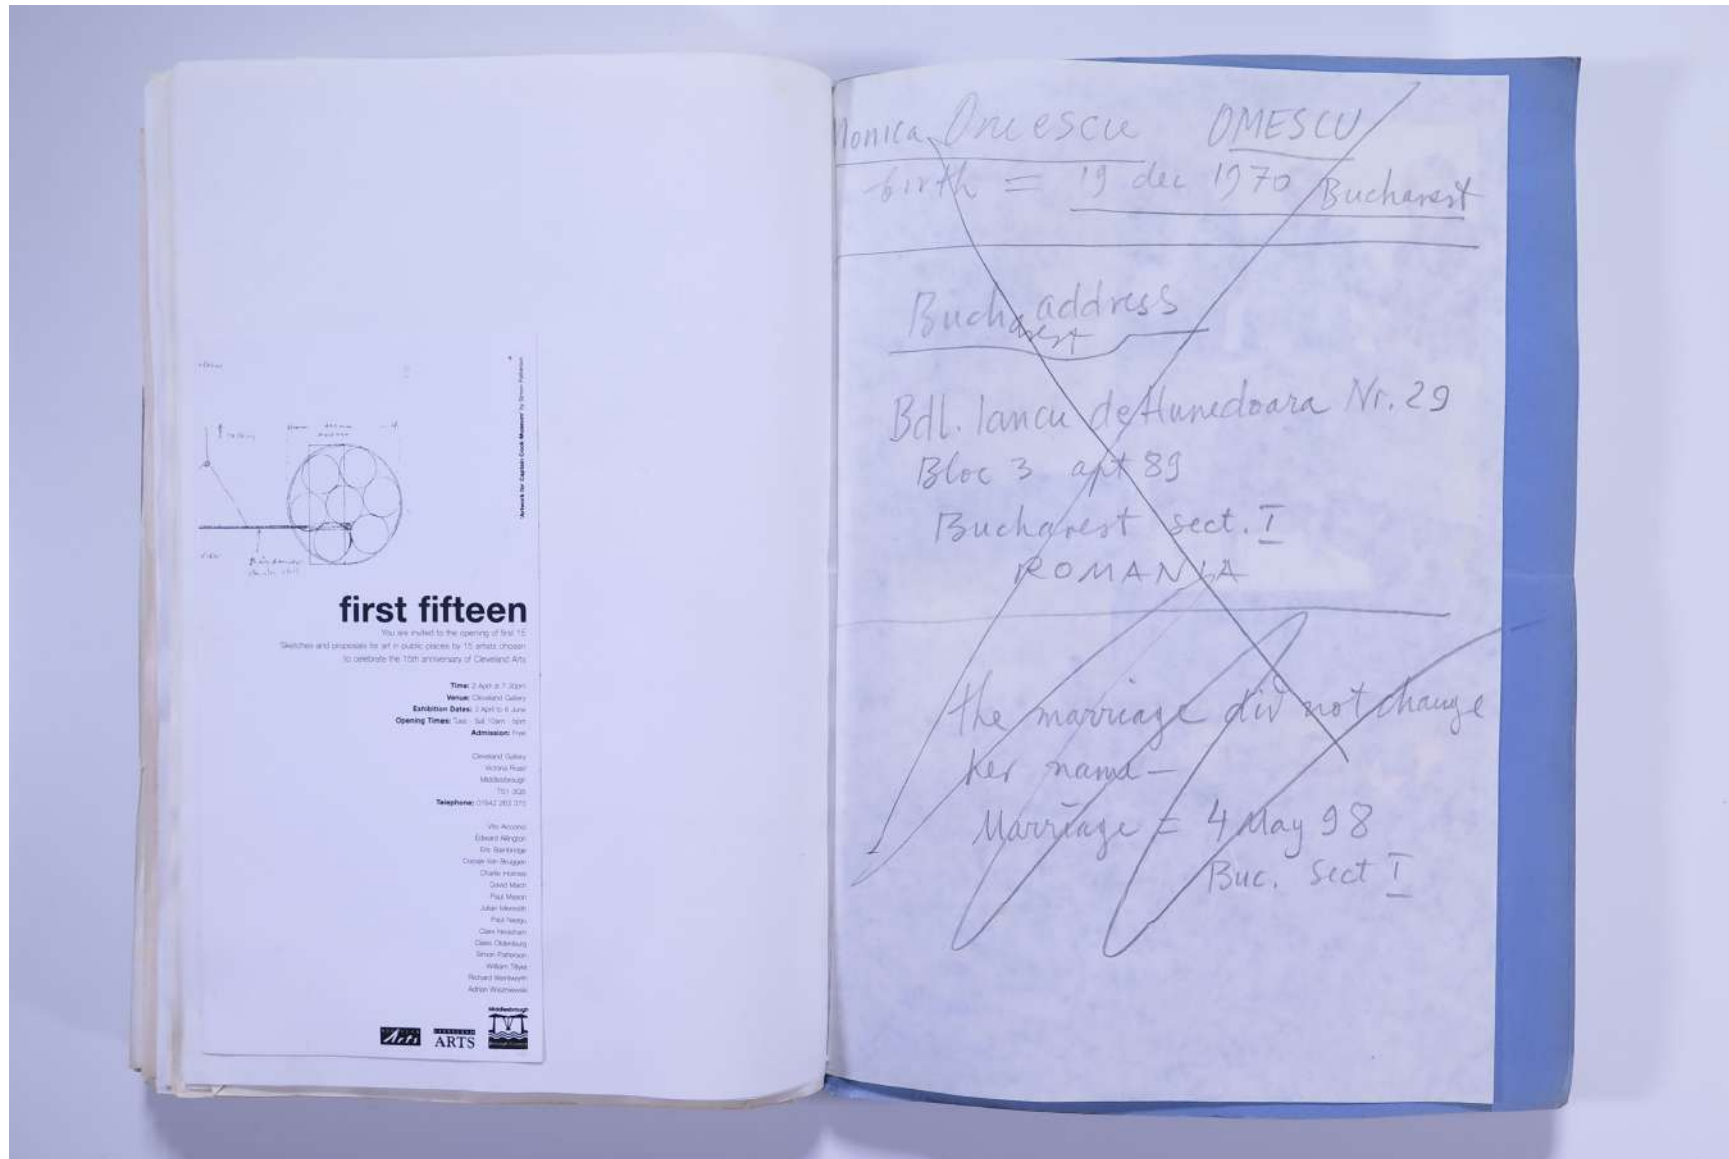 'Artwork for Captain Cook Museum' by Simon Patterson
view
first fifteen
You are invited to the opening of first 15
Sketches and proposals for art in public places by 15 artists chosen
to celebrate the 15th anniversary of Cleveland Arts
Time: 2 April at 7.30pm
Venue: Cleveland Gallery
Exhibition Dates: 3 April to 6 June
Opening Times: Tues - Sat 10am - 5pm
Admission: Free
Cleveland Gallery
Victoria Road
Middlesbrough
TS1 3QS
Telephone:
Vito Acconci
Edward Allington
Eric Bainbridge
Coosje Van Bruggen
Charlie Holmes
David Mach
Paul Mason
Julian Meredith
Paul Neagu
Claes Oldenburg
Simon Patterson
William Tillyer
Richard Wentworth
Adrian Wiszniewski
Middlesbrough
Arts
ARTS
Monica Omescu OMESCU
birth = 19 dec 1970 Bucharest
Bucharest address
Bdl. Iancu de Hunedoara Nr. 29
Bloc 3 apt 89
Bucharest sect. I
ROMANIA
the marriage did not change
her name -
Marriage = 4 May 98
Buc. Sect I